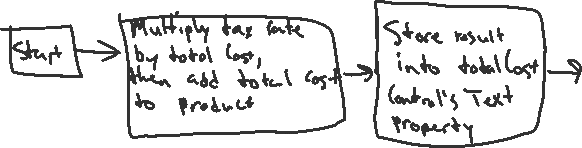 Start
Multiply tax rate
by total cost,
then add total cost
to product
Store result
into totalCost
Control's Text
property